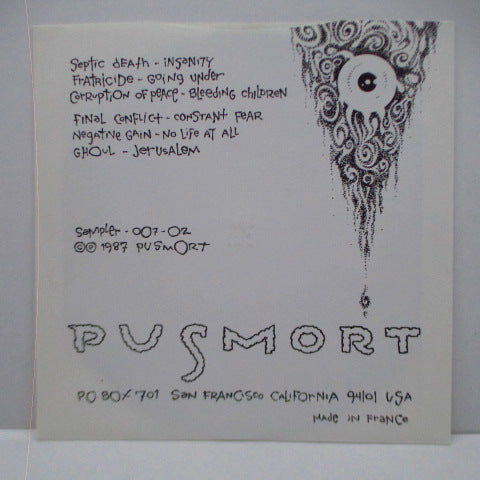 Septic death - insanity
Fratricide - Going Under
Corruption of peace - Bleeding children
Final Conflict - constant fear
Negative Gain - No Life At All
GHOUL - Jerusalem
Sampler - 007-02
©℗ 1987 PUSMORT
PUSMORT
PO BOX 701 SAN FRANCISCO CALIFORNIA 94101 USA
MADE IN FRANCE